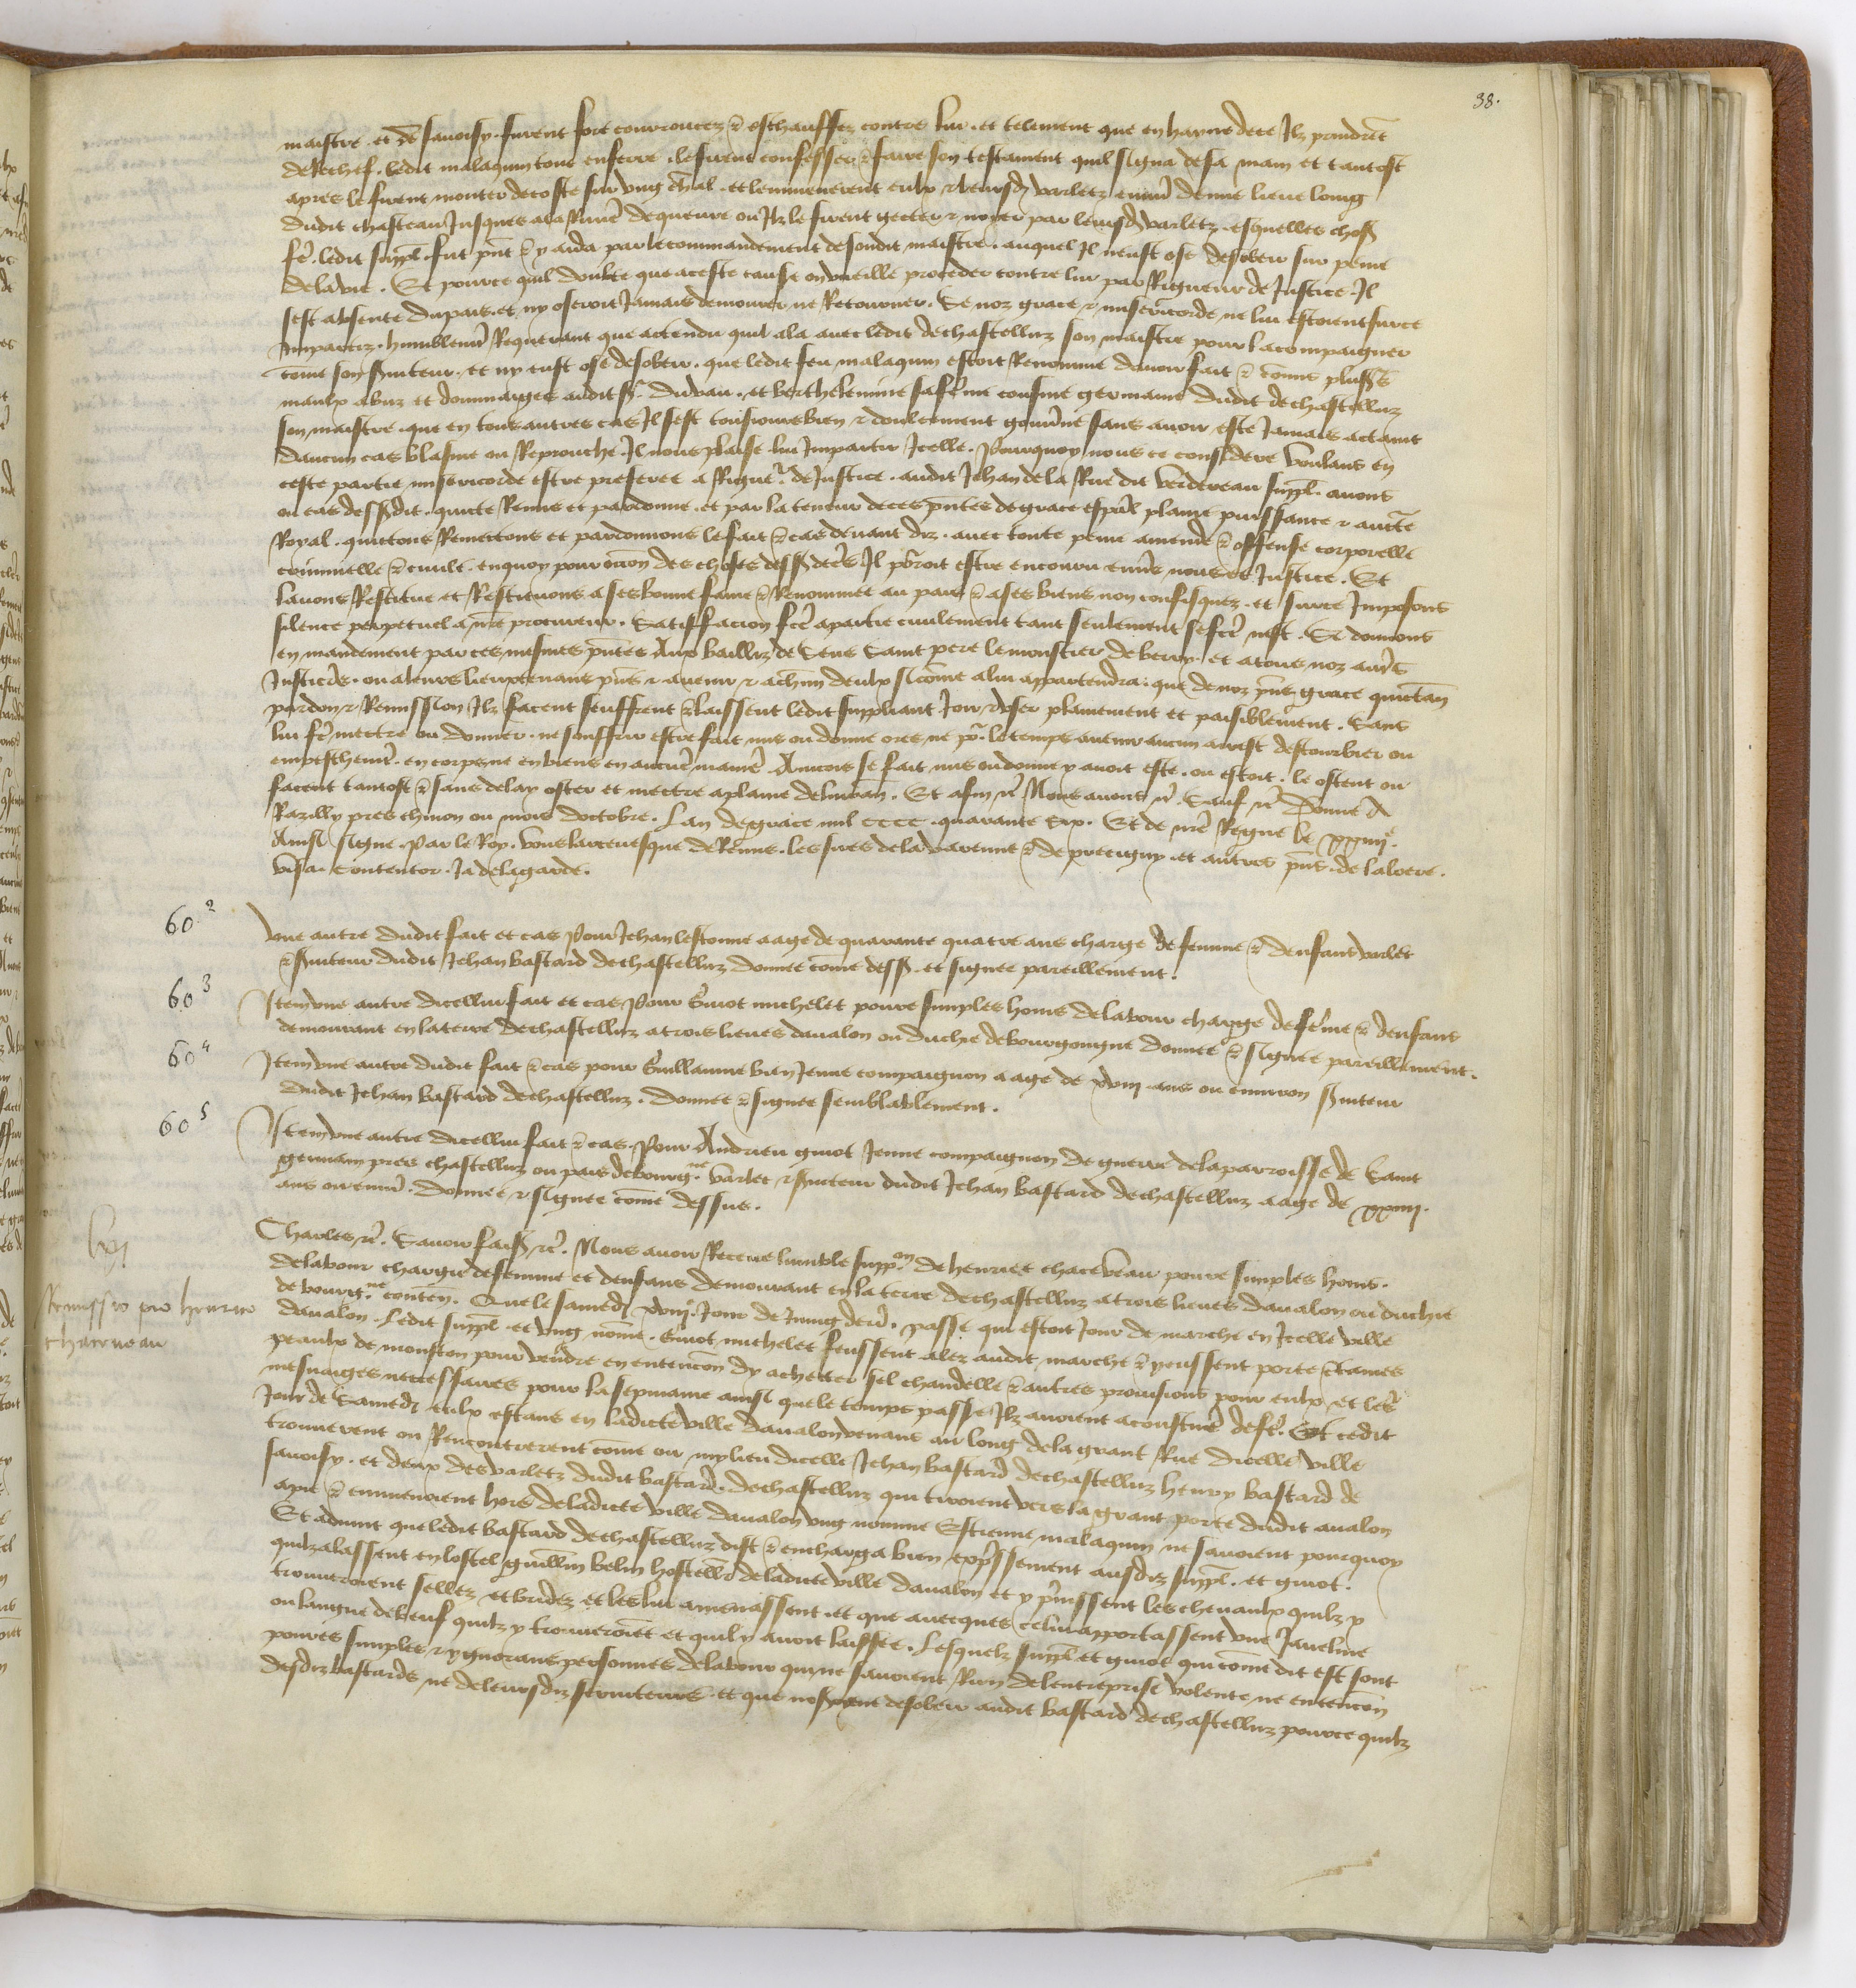 38.
maistre. et de sauoisy. furent fort courroucez & eschauffez contre lui. et telement que en hayne de ce Ilz prindrẽt
derechef. ledit malaquin tout enferre. le firent confesser & faire son testament quil signa de sa main et tantost
apres le firent monter de coste sur vng chãl. et lemmenerent eulx & leursd varletz enuirõ demie lieue loing
dudit chasteau Jusques a la Riuiẽ de queure ou Ilz le firent gecter & noyer par leursd varletz. esquelles chos
fẽ. ledit suppl. fut pñt & y aida par le commandement de sondit maistre. auquel Il neust ose desobeir sur peine
de la vie. Et pource quil doubte que a ceste cause on vueille proceder contre lui par Rigueur de Justice. Il
sest absente du pais. et ny oseroit Jamais demourer ne Retourner. Se noz grace & misericorde ne lui estoient sur ce
Imparties. humblemẽt Requerant que actendu quil ala auec ledit de chastelluz son maistre pour lacompaigner
cõme son seruiteur. et ny eust ose desobeir. que ledit feu malaquin estoit Renomme dauoir fait & cõmis plusrs
maulx abuz et dommaiges audit sr. du vau. et berthelemine sa fẽme cousine germaine dudit de chastelluz
son maistre. que en tous autres cas Il sest tousiours bien & doulcement gouuẽne sans auoir este Jamais actaint
daucun cas blasme ou Reprouche. Il nous plaise lui Impartir Icelle. Pourquoy nous ce considere voulans en
ceste partie misericorde estre preferee a Rigueᵣ de Justice. audit Jehan de la Rue dit verdereau suppl. auons
ou cas dessusdit. quicte Remis et pardonne. et par la teneur de ces pñtes de grace espãl plaine puissance & auctẽ
Royal. quictons Remectons et pardonnons le fait & cas deuant diz. auec toute peine amende & offense corporelle
criminelle & ciuile. en quoy pour occõn des choses dessusdẽs Il pourroit estre encouru enuẽs nous et Justice. Et
lauons Restitue et Restituons a ses bonne fame & Renommee au pais & a ses biens non confisquez. et sur ce Imposons
silence perpetuel a nrẽ procureur. Satisfacion fẽe a partie ciuilement tant seulement se fẽe nest. Si donnons
en mandement par ces mesmes pñtes Aux bailliz de Sens Saint pere le monstier de berry. et a tous noz autẽs
Justiciẽs. ou a leurs lieuxtenans pñs & auenir & a chũn deulx si cõme a lui appartendra. que de noz pñs grace quictãn
pardon & Remission Ilz facent seuffrent & laissent ledit suppliant Joir & vser plainement et paisiblement. Sans
lui fẽ mectre ou donner. ne souffrir estre fait mis ou donne ores ne pr. le temps auenir aucun arrest destourbier ou
empeschemẽt. en corps ne en biens en aucuẽ maniẽ. Aincois se fait mis ou donne y auoit este. ou estoit. le ostent ou
facent tantost & sans delay oster et mectre a plaine deliurãn. Et afin &c Nous auons &c. Sauf &c Donne A
Razilly pres chinon ou mois doctobre. Lan de grace mil cccc. quarante six. Et de nrẽ Regne le xxiiiie.
Ainsi signe. Par le Roy. Vous larceuesque de Reims. les sires de la varenne & de precigny. et autres pñs. de laloere.
visa. Contentor. Ja de la garde.
60.2 Une autre dudit fait et cas Pour Jehan lestonne aage de quarante quatre ans charge de femme & denfant varlet
& seruiteur dudit Jehan bastard de chastelluz donnee cõme dess. et signee pareillement.
60 3 Item vne autre dicellui fait et cas Pour Guiot michelet poure simples homs de labour charge de fẽme & denfans
demourant en la terre de chastelluz a trois lieues daualon ou duchie de bourgoingne donnee & signee pareillement.
60 4 Item vne autre dudit fait & cas pour Guillaume bien Jeune compaignon aage de xviii ans ou enuiron seruiteur
dudit Jehan bastard de chastelluz. donnee & signee semblablement.
60 5 Item vne autre dicellui fait & cas. Pour Andrieu guiot Jeune compaignon de guerre de la parroisse de Saint
germain pres chastelluz ou pais de bourgne. varlet & seruiteur dudit Jehan bastard de chastelluz aage de xxiiii.
ans ou enuirõ. Donnee & signee cõme dessus.
lxj
Remissio pro henrico
chaceueau
Charles &c. Sauoir fais &c. Nous auoir Receue lumble supp.on de henriet chaceueau poure simples homs.
de labour charge de femme et denfans demourant en la terre de chastelluz a trois lieues daualon ou duchie
de bourg.ne conten. Que le samedi xviii.e Jour de Juing deru. passe qui estoit Jour de marche en Icelle ville
daualon. Ledit suppl. et vng nõme. Guiot michelet feussent alez audit marche & y eussent porte certaines
peaulx de mouston pour vendre en entencõn dy achetter sel chandelle & autres prouisions pour eulx et leᵣs
mesnaiges neccessaires pour la sepmaine ainsi que le temps passe Ilz auoient acoustume de fẽ. Et cedit
Jour de Samedi eulx estans en ladicte ville daualon venans au long de la grant Rue dicelle ville
trouuerent ou Rencontrerent cõme ou mylieu dicelle Jehan bastard de chastelluz henry bastard de
sauoisy. et deux des varletz dudit bastard. de chastelluz qui tiroient vers la grant porte dudit aualon
apie & emmenoient hors de ladicte ville daualon vng nomme Estienne malaquin ne sauoient pourquoy
Et aduint que ledit bastard de chastelluz dist & encharga bien expressement ausdiz suppl. et guiot.
quilz alassent en lostel guillm̃ belin hostellr de ladicte ville daualon et y prinssent les cheuaulx quilz y
trouueroient sellez et bridez et les lui amenassent. et que auecques ce lui apportassent vne Jaueline
ou langue de beuf quilz y trouueroiẽt et quil y auoit laissee. Lesquelz suppl. et guiot qui cõme dit est sont
poures simples & ygnorans personnes de labour qui ne sauoient Riens de lentreprise volente ne entencõn
desdiz bastards ne de leursdiz seruiteurs. et que nosoyent desobeir audit bastard de chastelluz pource quilz